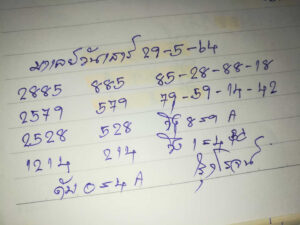 มาเลย์วันเสาร์ 29-5-64
2885 885 85-28-88-18
2579 579 79-59-14-42
2528 528 วิ่ง 8=9 A
1214 214 วิ่ง 1=4
ดับ 0=4 A